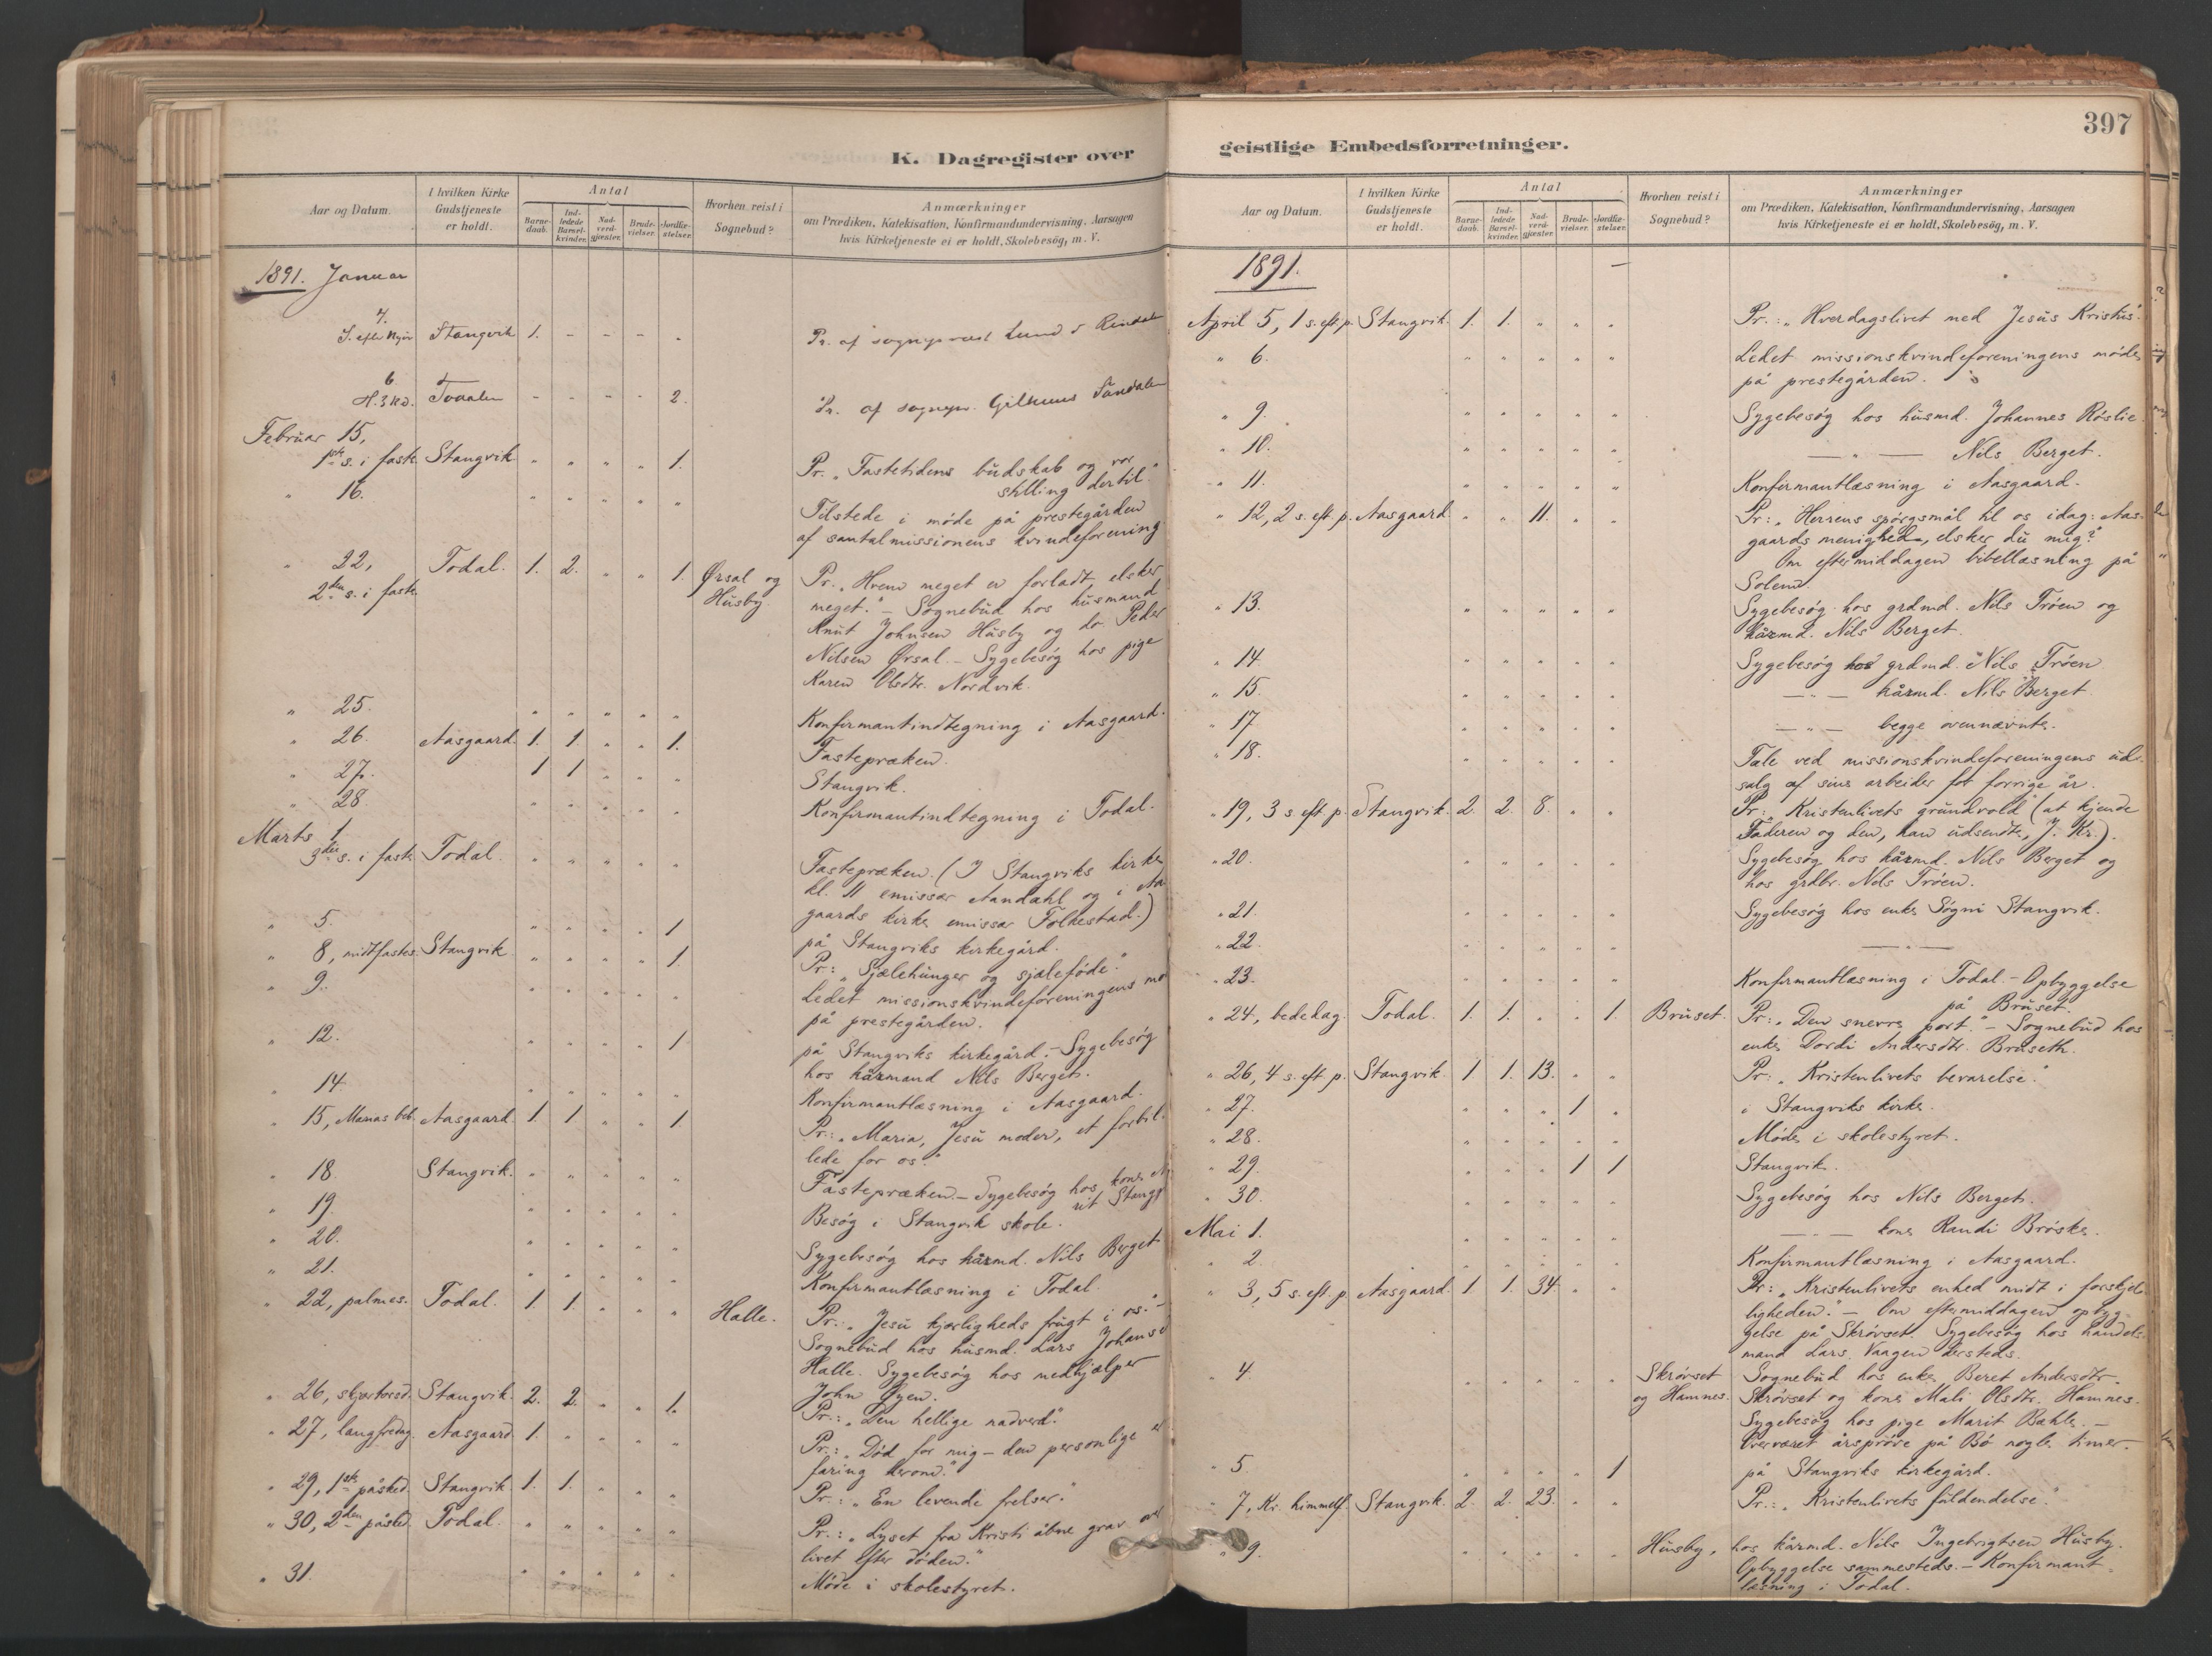 397
K. Dagregister over geistlige Embedsforretninger.
Aar og Datum. I hvilken Kirke Gudstjeneste er holdt. Antal Barnedaab. Indledede Barselkvinder. Nadverdgjæster. Brudevielser. Jordfæstelser. Hvorhen reist i Sognebud? Anmærkninger om Prædiken, Katekisation, Konfirmandundervisning, Aarsagen hvis Kirketjeneste ei er holdt, Skolebesög, m. V.
1891. Januar
4. S. efter Nyår Stangvik 1. - - - - Pr. af sogneprest Lund i Rindalen
6 H. 3 K.D. Todalen - - " - 2. Pr. af sognepr. Sündalen
Februar 15,
1ste s. i faste Stangvik " " " " 1. Pr. „Fastetidens budskab og vor
stilling dertil."
" 16. " " " " " Tilstede i møde på prestegården
af santalmissionens kvindeforening
" 22, Todal. 1. 2. " " 1. Ørsal og Pr. „Hvem meget er forladt, elsker
2den s. i faste Husby. meget." – Sognebud hos husmand
Knut Johnsen Husby og do Peder
Nilsen Ørsal. – Sygebesøg hos pige
Karen Olsdtr. Nordvik.
" 25. " " " " " Konfirmantindtegning i Aasgaard.
" 26. Aasgaard. 1. 1. " " 1. Fastepræken.
" 27. 1 1 " " " Stangvik.
" 28. " " " " " Konfirmantindtegning i Todal.
Marts 1
3die s. i faste Todal. " " " " " Fastepræken. (I Stangviks kirke
kl. 11 emissær Aandahl og i Aas
gaards kirke emissær Folkestad.)
" 5. " " " " 1 på Stangviks kirkegård.
" 8, midtfaste s. Stangvik " " " " 1. Pr: „Sjælehunger og sjæleføde."
" 9. " " " " " Ledet missionskvindeforeningens mø
på prestegården.
" 12. " " " " 1 på Stangviks kirkegård. – Sygebesøg
hos kårmand Nils Berget.
" 14. " " " " " Konfirmantlæsning i Aasgaard.
" 15, Marias beb. Aasgaard. 1. 1. " " 1. Pr: „Maria, Jesu moder, et forbil-
lede for os."
" 18. Stangvik. " " " " " Fastepræken. – Sygebesøg hos kone
" 19. " " " " " Besøg i Stangvik skole.
" 20. " " " " " Sygebesøg hos kårmd. Nils Berget
" 21. " " " " " Konfirmantlæsning i Todal.
" 22, palmes. Todal. 1. 1. " " " Halle. Pr.: „Jesu kjærligheds frugt i os." –
Sognebud hos husmd. Lars Johansen
Halle. Sygebesøg hos medhjælper
John Øyen.
" 26, skjærtorsd. Stangvik. 2. 2. " " 1. Pr.: „Den hellige nadverd."
" 27, langfredag. Aasgaard. 1. " " " " Pr.: „Død for mig – den personlige er
faring derom."
" 29, 1ste påsked. Stangvik 1. 1. " " " Pr.: „En levende frelser."
" 30, 2den påsked. Todal. " " " " " Pr.: „Lyset fra Kristi åbne grav over
livet efter døden."
" 31. " " " " " Møde i skolestyret.
1891.
April 5, 1 s. eft. p. Stangvik. 1. 1. " " " Pr.: „Hverdagslivet med Jesus Kristus."
" 6. " " " " " Ledet missionskvindeforeningens møde
på prestegården.
" 9. " " " " " Sygebesøg hos husmd. Johannes Røslie
" 10. " " " " " — " — Nils Berget.
" 11. " " " " " Konfirmantlæsning i Aasgaard.
" 12, 2 s. eft. p. Aasgaard. " " 11. " " Pr: „Herrens spørgsmål til os idag: Aas-
gaards menighed, elsker du mig?"
Om eftermiddagen bibellæsning på
Solem.
" 13. " " " " " Sygebesøg hos grdmd. Nils Trøen og
kårmd. Nils Berget.
" 14. " " " " " Sygebesøg hos grdmd. Nils Trøen
" 15. " " " " " — " — kårmd. Nils Berget
" 17. " " " " " — " — begge ovennævnte.
" 18. " " " " " Tale ved missionskvindeforeningens ud-
salg af sine arbeider for forrige år.
" 19, 3 s. eft. p. Stangvik. 2. 2. 8. " " Pr.: „Kristenlivets grundvold" (at kjende
Faderen og den, han udsendte, J. Kr.).
" 20. " " " " " Sygebesøg hos kårmd. Nils Berget og
hos grdbr. Nils Trøen.
" 21. " " " " " Sygebesøg hos enke Søgni Stangvik.
" 22. " " " " " — " —
" 23. " " " " " Konfirmantlæsning i Todal. – Opbyggelse
på Bruset.
" 24, bededag. Todal. 1. 1. " " 1. Bruset. Pr.: „Den snevre port." – Sognebud hos
enke Dordi Andersdtr. Bruseth.
" 26, 4 s. eft. p. Stangvik. 1 1. 13. " " Pr: „Kristenlivets bevarelse."
" 27. " " " 1 " i Stangviks kirke.
" 28. " " " " " Møde i skolestyret.
" 29. " " " 1 1 Stangvik.
" 30. " " " " " Sygebesøg hos Nils Berget.
Mai 1. " " " " " — " — kone Randi Brøske.
" 2. " " " " " Konfirmantlæsning i Aasgaard.
" 3, 5 s. eft. p. Aasgaard. 1 1. 34. " " Pr: „Kristenlivets enhed midt i forskjel-
ligheden." – Om eftermiddagen opbyg-
gelse på Skrøvset. Sygebesøg hos handels-
mand Lars Vaagen dersteds.
" 4. " " " " " Skrøvset Sognebud hos enke Beret Andersdtr.
og Hamnes. Skrøvset og kone Mali Olsdtr. Hamnes.
Sygebesøg hos pige Marit Bæhle. –
Overværet årsprøve på Bø nogle timer.
" 5. " " " " 1 på Stangviks kirkegård.
" 7, Kr. himmelf. Stangvik. 2. 2. 23. " " Pr.: „Kristenlivets fuldendelse."
" 9. " " " " " Husby, hos kårmd. Nils Ingebrigtsen Husby.
Opbyggelse sammesteds. – Konfirmant-
læsning i Todal.